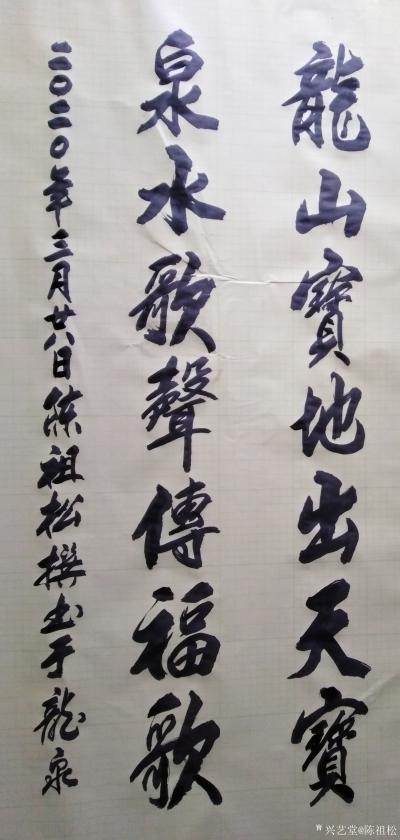 龍山寶地出天寶
泉水歌聲傳福歌
二〇二〇年三月廿八日陈祖松撰书于龍泉
兴艺堂@陈祖松